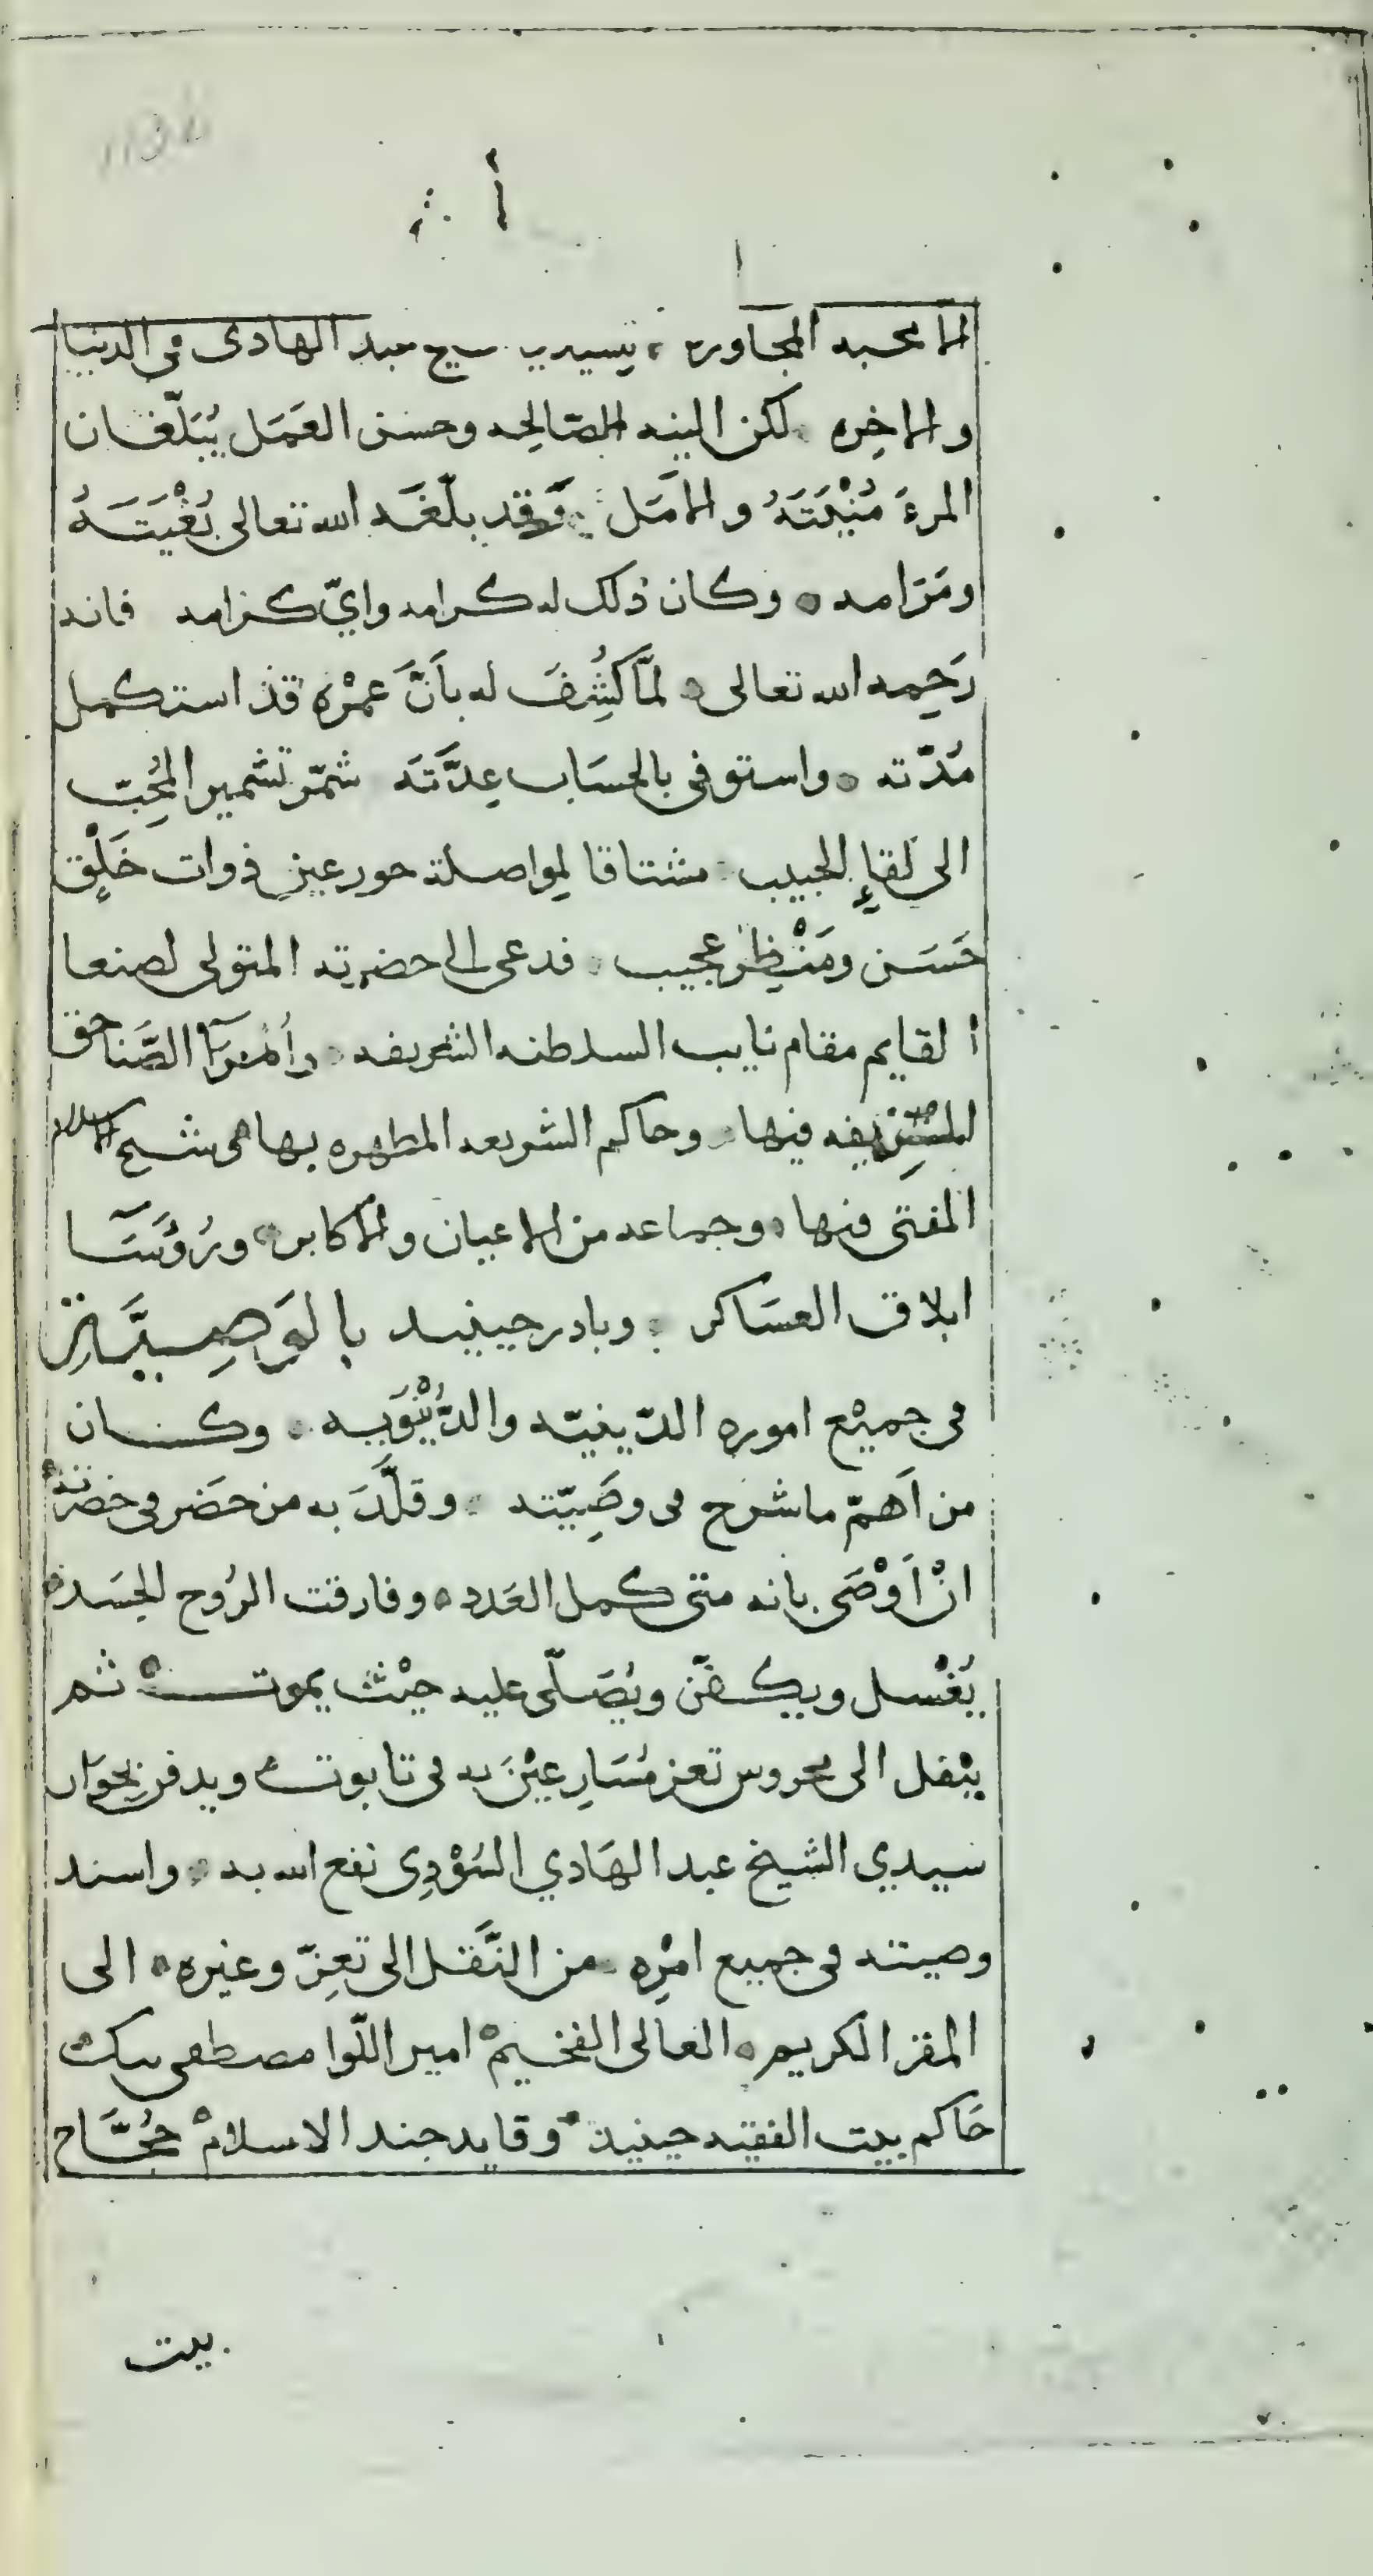 الا محبه المجاوره لسيدي عبد الهادى فى الدنيا
والاخِره لكن النيه الصّالحِه وحسن العَمَل يُبَلّغان
المرءَ مُنْيَتَهُ والامَل وَقد بلّغَه الله تعالى بُغْيَتَهُ
ومَرَامه وكان ذلك له كرامه وايّ كرامه فانه
رَحِمه الله تعالى لمّا كُشِفَ له بأنَّ عمْرَه قد استكمل
مُدّته واستوفى بالحسَاب عِدَّتَه شمّر تشمير المُحِبّ
الى لقاءِ الحبيب مشتاقا لِمواصلة حور عين ذوات خَلْق
حَسَن ومَنْظر عجيب فدعى الى حضرته المتولى لصنعا
القايم مقام نايب السلطنه الشريفه وأُمَرَآ الصَّناجق
الشريفه فيها وحاكم الشريعه المطهره بها شيخ الاسلام
المفتى فيها وجماعه من الاعيان والاكابر ورُؤَسَآ
ابلاق العسَاكر وبادر حينيد بالوَصِيَّة
فى جميْع اموره الدّينيّه والدُّنْيَويه وكان
من اَهمّ ما شرح فى وصَِيّته وقلَّدَ به من حضَر فى حضرته
انْ اَوْصَى بانه متى كمل العَدد وفارقت الرُوح الجسَد
يُغْسل ويكفّن ويُصَلّى عليه حيْث يموت ثم
ينقل الى محروس تعز مُسَارعيْنَ به فى تابوت ويدفن بجوَار
سيدي الشيخ عبد الهَادي السُوْدِى نفع الله به واسند
وصيته فى جميع امْرِه من النَّقل الى تعِزّ وغيره الى
المقر الكريم العالى الفخيم امير اللّوا مصطفى بيك
حَاكم بيت الفقيه حينيذ وقايد جند الاسلام حُجَّاج
بيت